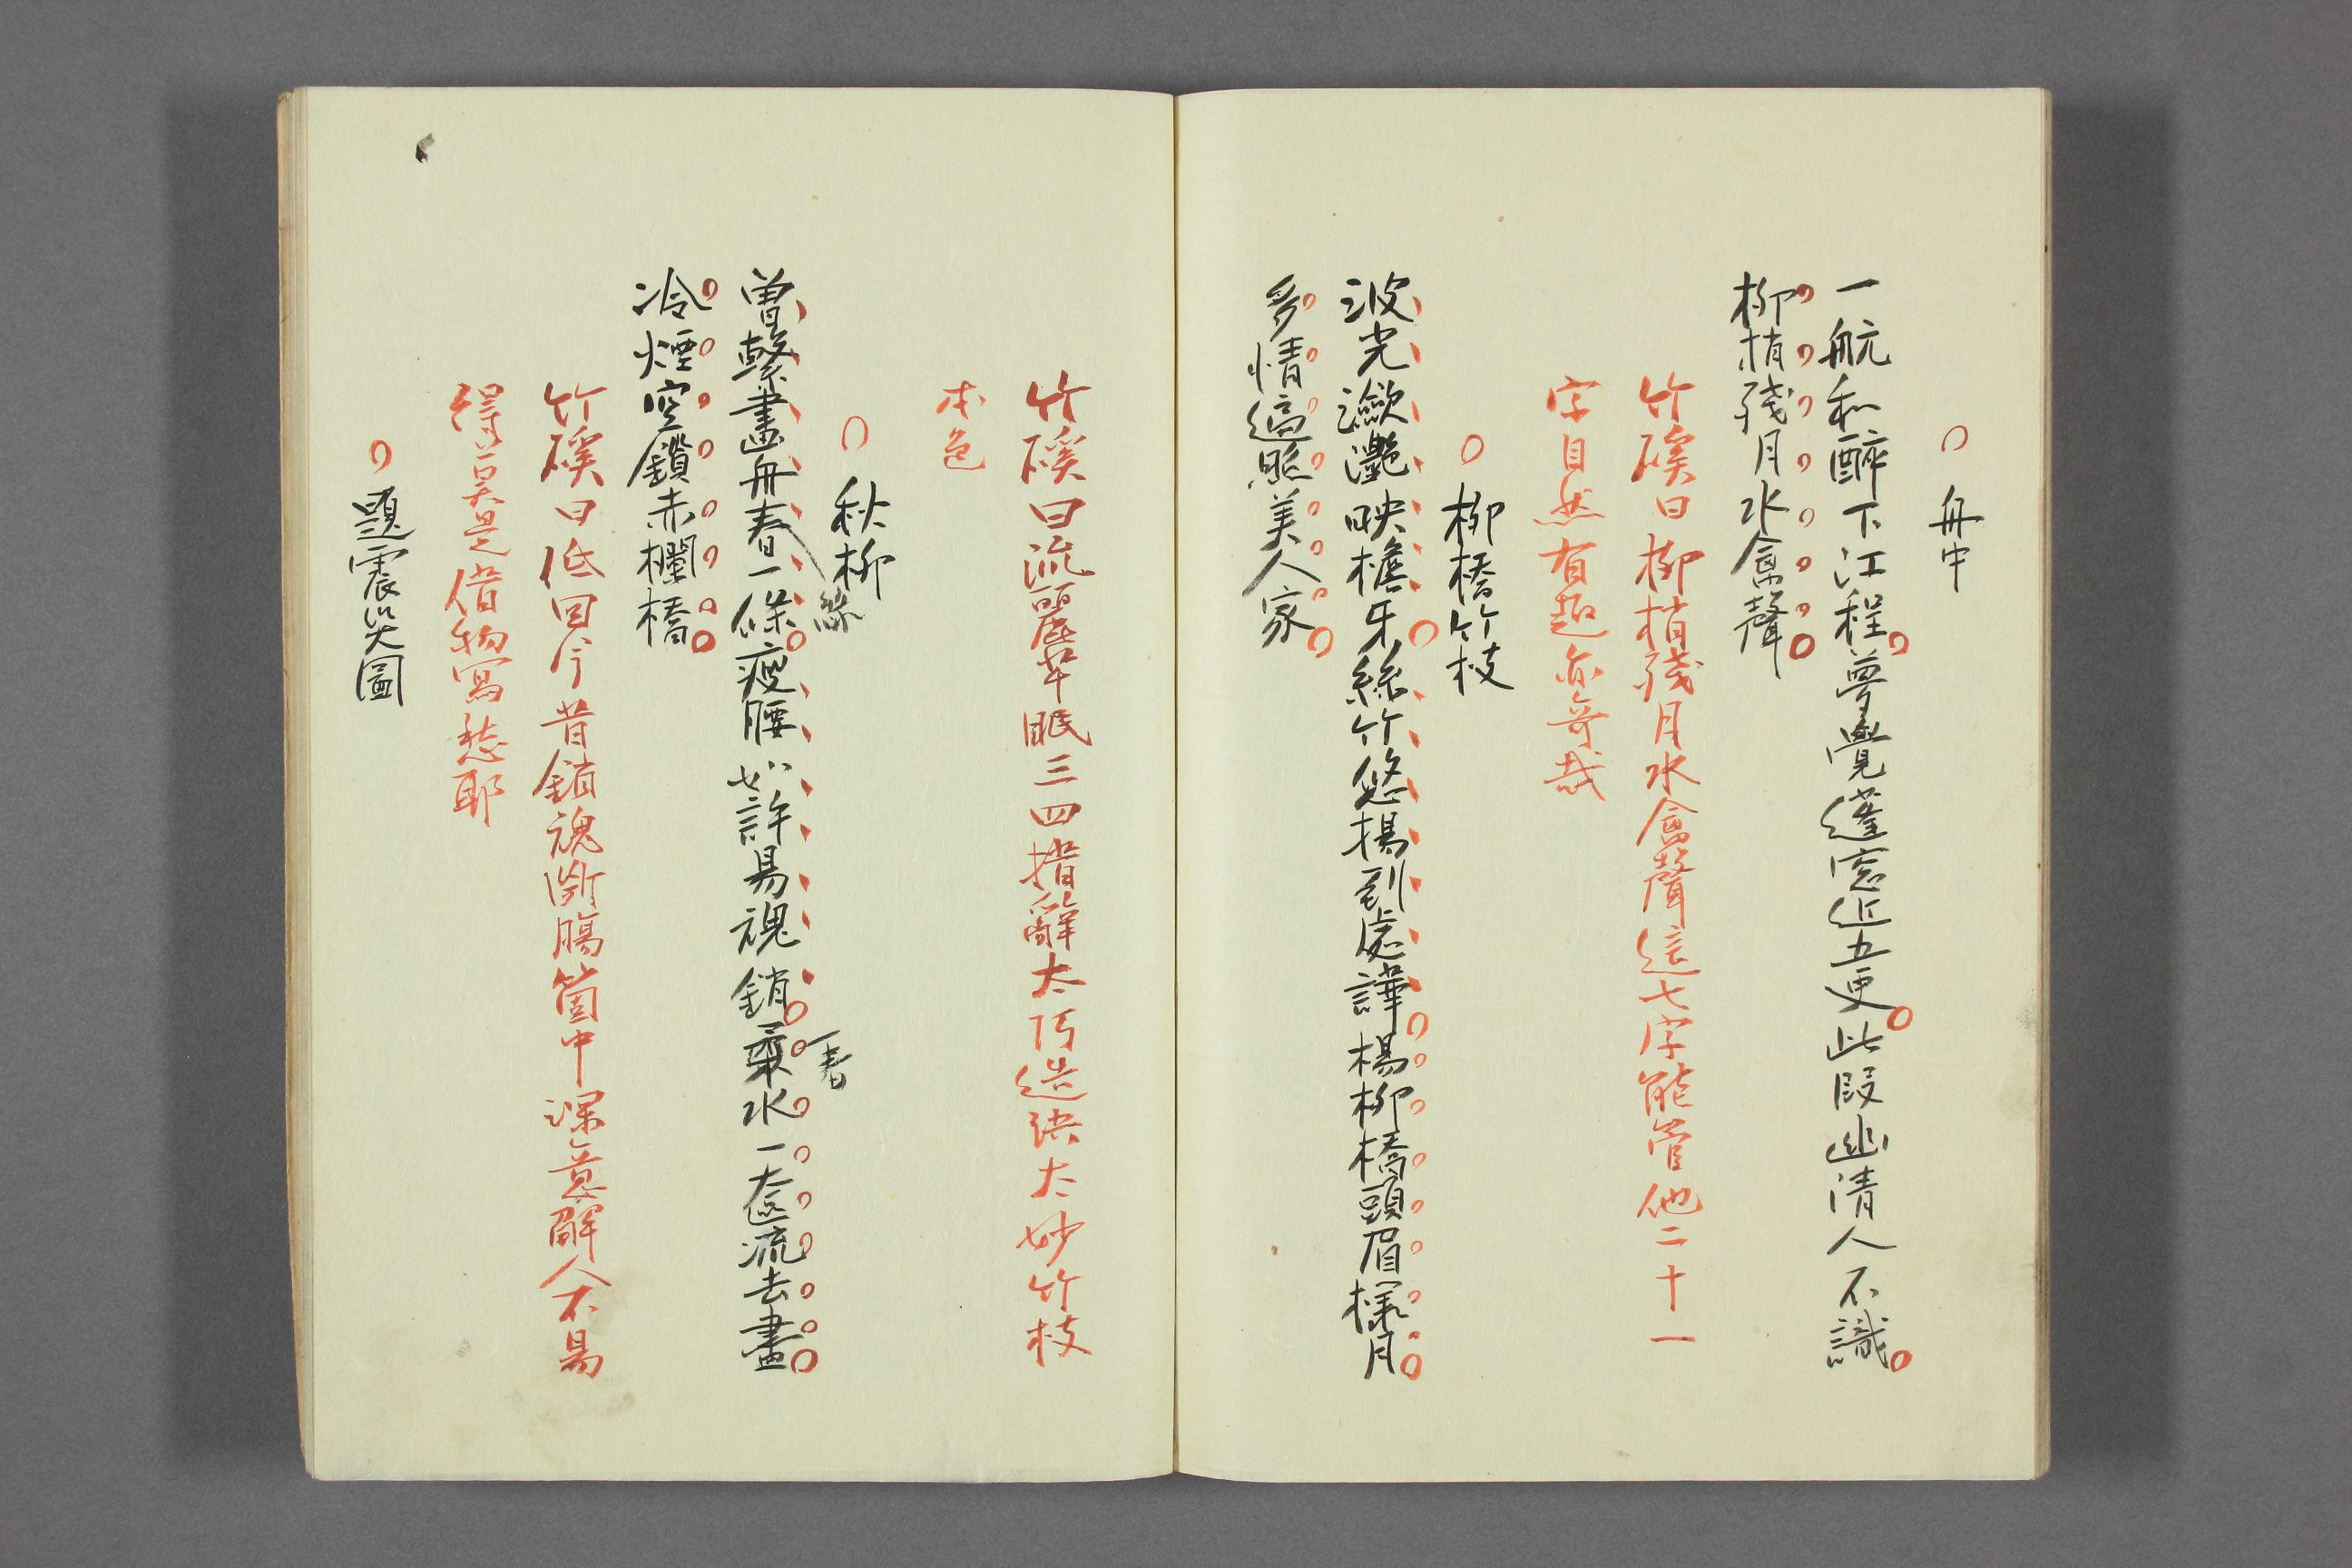 舟中
一航和醉下江程夢覺蓬窓近五更此段幽清人不識
柳梢殘月水禽聲
竹磎曰柳梢殘月水禽聲這七字能管他二十一
字自然有趣亦奇哉
柳橋竹枝
波光瀲灎映檐牙絲竹悠揚到處譁楊柳橋頭眉樣月
多情遍照美人家
竹磎曰流麗芊眠三四措辭太巧造語太妙竹枝
本色
秋柳
絲
曾繫畫舟春一條瘦腰如許易魂銷
春
水一奩流去盡
冷煙空鎖赤欄橋
竹磎曰低回今昔銷魂斷腸箇中深意解人不易
得莫是借物寫愁耶
題震災圖